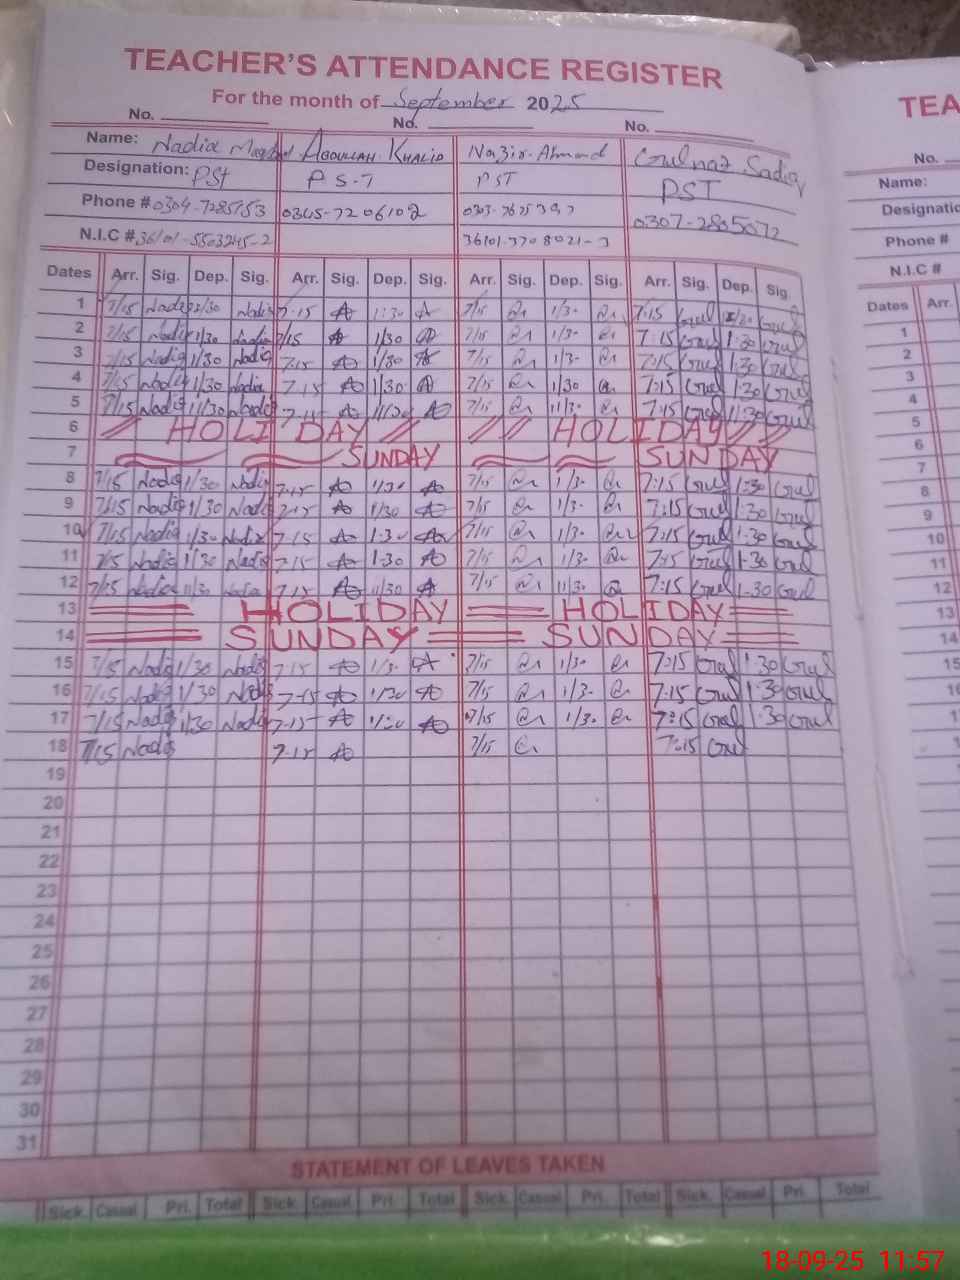 TEACHER'S ATTENDANCE REGISTER
For the month of September 2025
No. No. No.
Name: Nadia Abdullah Khalid Nazir Ahmad Gulnaz Sadiq
Designation: PST P S-T PST PST
Phone # 0304-7285153 0345-7206102 0307-2805072
N.I.C # 36101-5503245-2 36101-3708021-3
Dates Arr. Sig. Dep. Sig. Arr. Sig. Dep. Sig. Arr. Sig. Dep. Sig. Arr. Sig. Dep. Sig.
1 7/15 Nadia 1/30 Nadia 7-15 1:30 7/15 1/30 7:15 Gul 1:30 Gul
2 7/15 Nadia 1/30 Nadia 7/15 1/30 7/15 1/30 7:15 Gul 1:30 Gul
3 7/15 Nadia 1/30 Nadia 7-15 1/30 7/15 1/30 7:15 Gul 1:30 Gul
4 7/15 Nadia 1/30 Nadia 7-15 1/30 7/15 1/30 7:15 Gul 1:30 Gul
5 7/15 Nadia 11/30 Nadia 7-15 11/30 7/15 11/30 7:15 Gul 11:30 Gul
6 HOLIDAY HOLIDAY
7 SUNDAY SUNDAY
8 7/15 Nadia 1/30 Nadia 7-15 1/30 7/15 1/30 7:15 Gul 1:30 Gul
9 7/15 Nadia 1/30 Nadia 7-15 1/30 7/15 1/30 7:15 Gul 1:30 Gul
10 7/15 Nadia 1/30 Nadia 7-15 1-30 7/15 1/30 7:15 Gul 1-30 Gul
11 7/15 Nadia 1/30 Nadia 7-15 1-30 7/15 1/30 7:15 Gul 1-30 Gul
12 7/15 Nadia 11/30 Nadia 7-15 11/30 7/15 11/30 7:15 Gul 1-30 Gul
13 HOLIDAY HOLIDAY
14 SUNDAY SUNDAY
15 7/15 Nadia 1/30 Nadia 7-15 1/30 7/15 1/30 7:15 Gul 1:30 Gul
16 7/15 Nadia 1/30 Nadia 7-15 1/30 7/15 1/30 7:15 Gul 1:30 Gul
17 7/15 Nadia 1/30 Nadia 7-15 1/30 7/15 1/30 7:15 Gul 1:30 Gul
18 7/15 Nadia 7-15 7/15 7:15 Gul
19
20
21
22
23
24
25
26
27
28
29
30
31
STATEMENT OF LEAVES TAKEN
Sick. Casual Pri. Total Sick. Casual Pri. Total Sick. Casual Pri. Total Sick. Casual Pri. Total
TEA
No.
Name:
Designatio
Phone #
N.I.C #
Dates Arr.
1
2
3
4
5
6
7
8
9
10
11
12
13
14
15
16
17
18-09-25 11:57